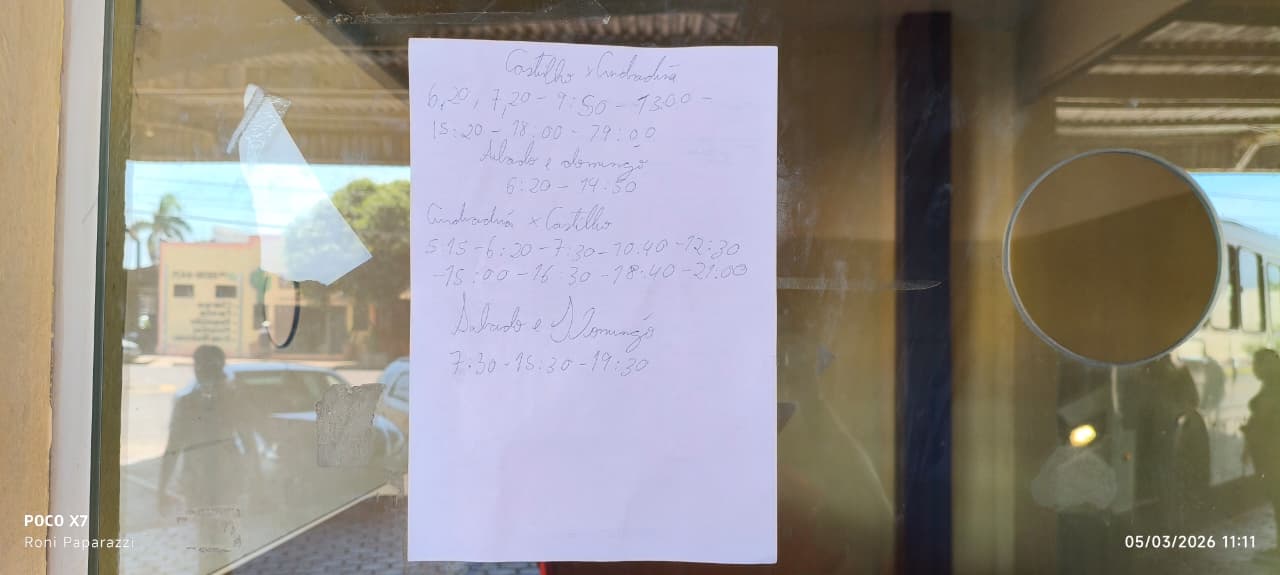 Castilho x Andradina
6,20, 7,20 - 9:50 - 13.00 -
15:20 - 18:00 - 19:00
Sabado e domingo
6:20 - 14:50
Andradina x Castilho
5 15 - 6:20 - 7:30 - 10:40 - 12:30
- 15:00 - 16 30 - 18:40 - 21:00
Sabado e Domingo
7:30 - 15:30 - 19:30
POCO X7
Roni Paparazzi
05/03/2026 11:11